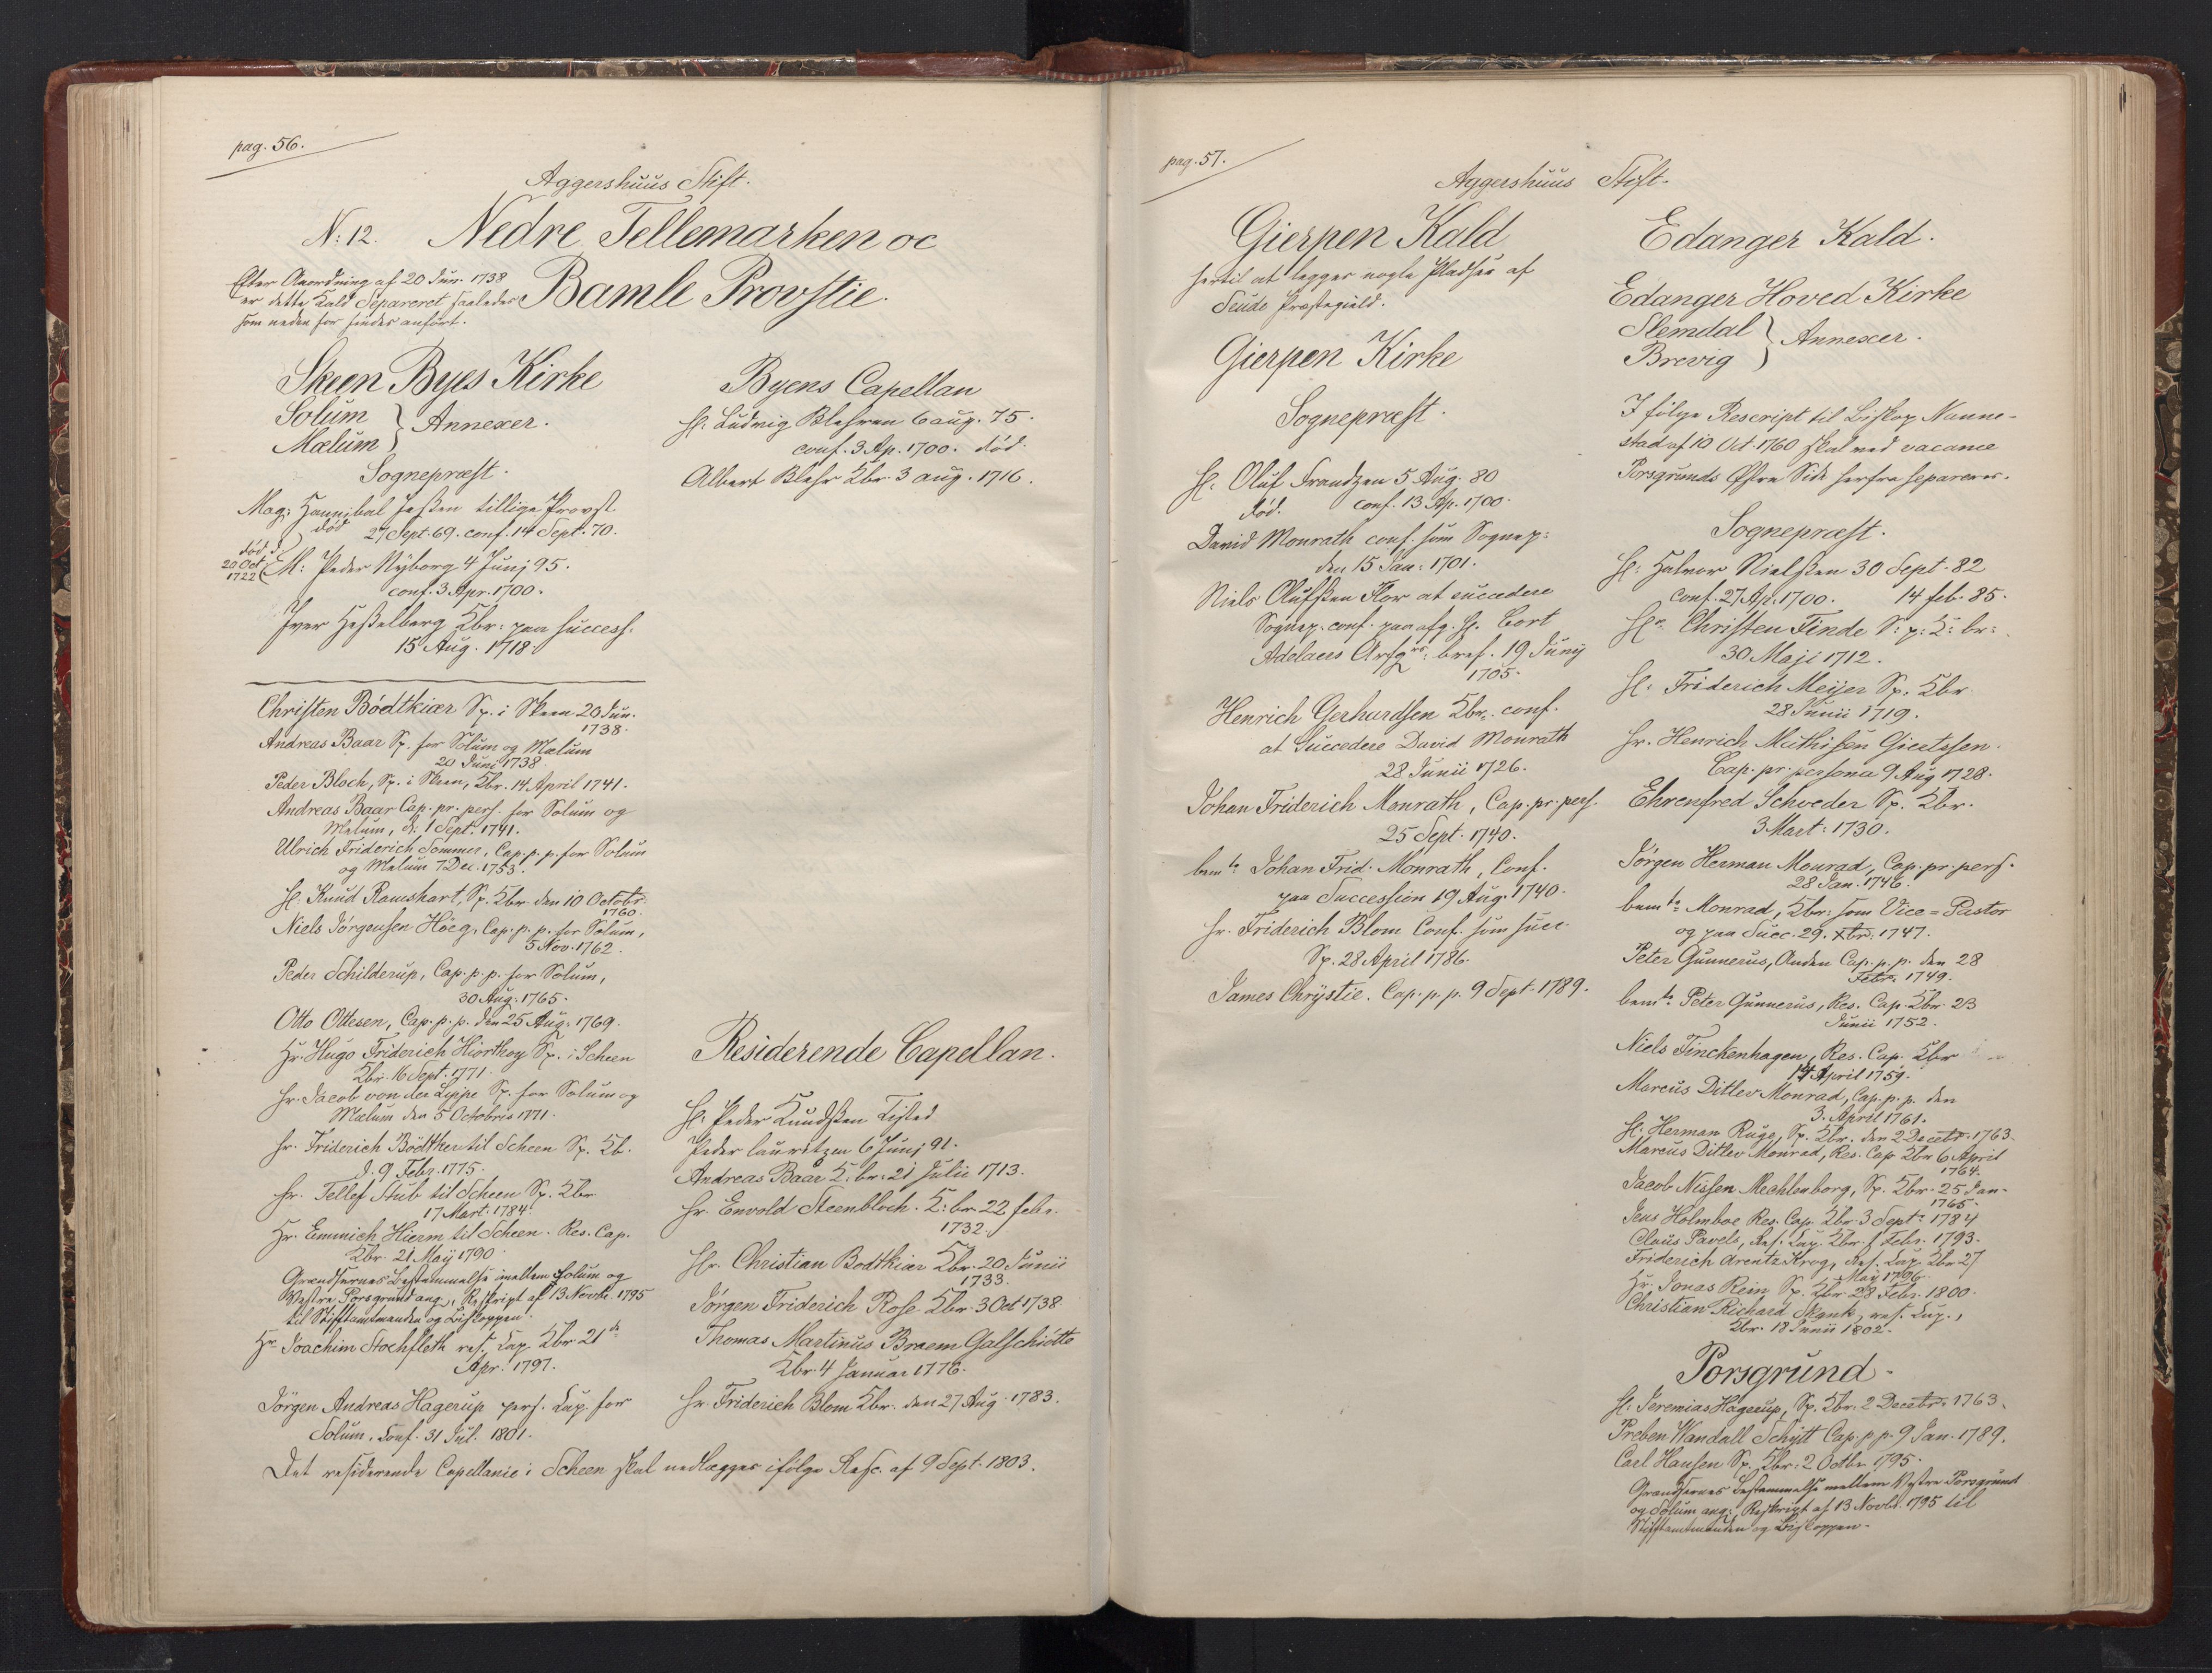 pag. 56.
Aggershuus Stift.
N: 12. Nedre Tellemarken oc
Efter Anordning af 20 Jun. 1738
er dette Kald Separeret saaledes
som neden for findes anført.
Bamle Provstie.
Skeen Byes Kirke
Solum
Mælum } Annexer.
Sognepræst.
Mag: Hannibal Jessen tillige Provst
død 27 Sept. 69. conf. 14 Sept. 70.
død d.
20 Oct
1722
M: Peder Nyborg 4 Junj 95.
conf. 3. Apr. 1700.
Iver Hesselberg Kbr: paa success.
15 Aug. 1718.
Christen Bødtkiær Sp. i Skeen 20 Jun.
1738.
Andreas Baar Sp. for Solum og Mælum
20 Juni 1738
Peder Bloch, Sp. i Skeen, Kbr. 14 April 1741.
Andreas Baar Cap. pr. pers. for Solum og
Mælum, d: 1 Sept. 1741.
Ulrich Friderich Sommer, Cap. p. p. for Solum
og Mælum 7 Dec. 1753.
H. Knud Ramshart, Sp. Kbr. den 10 Octobr.
1760.
Niels Jörgensen Höeg, Cap. p. p. for Solum,
5 Nov. 1762.
Peder Schilderup, Cap. p. p. for Solum,
30 Aug. 1765.
Otto Ottesen, Cap. p. p. den 25 Aug. 1769.
Hr. Hugo Friderich Hiorthoy Sp. i Scheen
Kbr. 16 Sept. 1771.
Hr. Jacob von der Lippe Sp. for Solum og
Mælum den 5 Octobris 1771.
Hr. Friderich Bödtker til Scheen Sp. Kb.
d. 9 Febr. 1775.
Hr. Tellef Stub til Scheen Sp. Kbr.
17 Mart. 1784.
Hr. Emmich Hierm til Scheen. Res. Cap.
Kbr. 21 Maij 1790.
Grændsernes Bestemmelse imellem Solum og
Vestre Porsgrund ang., Reskript af 13 Novbr. 1795
til Stiftamtmanden og Biskoppen.
Hr Joachim Stochfleth res. Cap. Kbr 21de
Apr. 1797.
Jörgen Andreas Hagerup pers. Cap. for
Solum, Conf. 31 Jul. 1801.
Det residerende Capellanie i Scheen skal nedlægges ifølge Resc. af 9 Sept. 1803.
Byens Capellan
H. Ludvig Blehren 6 aug. 75.
conf. 3. Ap. 1700. død.
Albert Blehr Kbr. 3 aug. 1716.
Residerende Capellan.
H. Peder Knudsen Listed
Peder Lauritzen 6 Junj 91.
Andreas Baar K: br: 21 Julii 1713.
Hr. Envold Steenbloch. K: br 22 febr.
1732.
Hr. Christian Bodtkiær Kbr. 20 Junii
1733.
Jörgen Friderich Rose Kbr. 3 Oct 1738
Thomas Martinus Braem Galschiötte
Kbr. 4 Januar 1776.
Hr. Friderich Blom Kbr. den 27 Aug. 1783.
pag. 57.
Aggershuus Stift.
Gierpen Kald
hertil at legges nogle Pladser af
Seude Præstegield.
Gierpen Kirke
Sognepræst.
H: Oluf Frandzen 5 Aug. 80
død. conf. 13 Ap. 1700.
David Monrath conf. som Sognep:
den 15 Jan: 1701.
Niels Olufsen Flor at succedere
Sognep. conf. paa afg. H. Cort
Adelaers Arfgrs: bref. 19 Junij
1705.
Henrich Gerhardsen Kbr. conf.
at Succedere David Monrath
28 Junii 1726.
Johan Friderich Monrath, Cap. pr. pers.
25 Sept. 1740.
bemte Johan Frid. Monrath, Conf.
paa Succession 19 Aug. 1740.
Hr. Friderich Blom Conf. som succ.
Sp. 28 April 1786.
James Chrÿstie. Cap. p. p. 9 Sept. 1789.
Edanger Kald.
Edanger Hoved Kirke
Slemdal
Brevig } Annexer.
I følge Rescript til Biskop Nanne-
stad af 10 Oct. 1760 skal ved vacance
Porsgrunds Østre Side herfra separeres.
Sognepræst.
H: Halvor Nielssen 30 Sept. 82
Conf. 27 Ap. 1700. 14 feb. 85.
Hr. Christen Tinde S: p: K: br:
30 Maji 1712.
H: Friderich Meijer Sp. Kbr
28 Junii 1719.
Hr. Henrich Mathisen Giertssen.
Cap. pr. persona 9 Aug 1728.
Ehrenfred Schweder Sp. Kbr.
3. Mart: 1730.
Jörgen Herman Monrad, Cap. pr. pers.
28 Jan. 1746.
bemte Monrad, Kbr: som Vice-Pastor
og paa Succ. 29. Xbr. 1747.
Peter Gunnerus, Anden Cap. p. p. den 28
Febr. 1749.
bemte Peter Gunnerus, Res. Cap. Kbr. 23
Junii 1752.
Niels Finckenhagen, Res. Cap. Kbr
14 April 1759.
Marcus Ditlev Monrad, Cap. p. p. den
3. April 1761.
H. Herman Ruge, Sp. Kbr. den 2 Decebr. 1763.
Marcus Ditlev Monrad, Res. Cap Kbr 6 April
1764.
Jacob Nissen Mechlenborg, Sp. Kbr. 25 Jan.
1765.
Jens Holmboe Res. Cap. Kbr. 3 Sept: 1784
Claus Pavels, Res. Cap. Kbr. 1 Febr. 1793.
Friderich Arentz Krog, Res. Cap. Kbr 27
May 1796.
Hr. Jonas Rein Sp. Kbr 28 Febr. 1800.
Christian Richard Skanke, res. Cap.,
Kbr. 18 Junii 1802.
Porsgrund.
H. Jeremias Hagerup, Sp. Kbr. 2 Decebr. 1763.
Preben Wandall Schÿtt Cap. p p. 9 Jan. 1789.
Carl Hansen Sp. Kbr. 2 Octbr. 1795.
Grændsernes Bestemmelse mellem Vestre Porsgrund
og Solum ang. Reskript af 13 Novbr. 1795 til
Stiftamtmanden og Biskoppen.